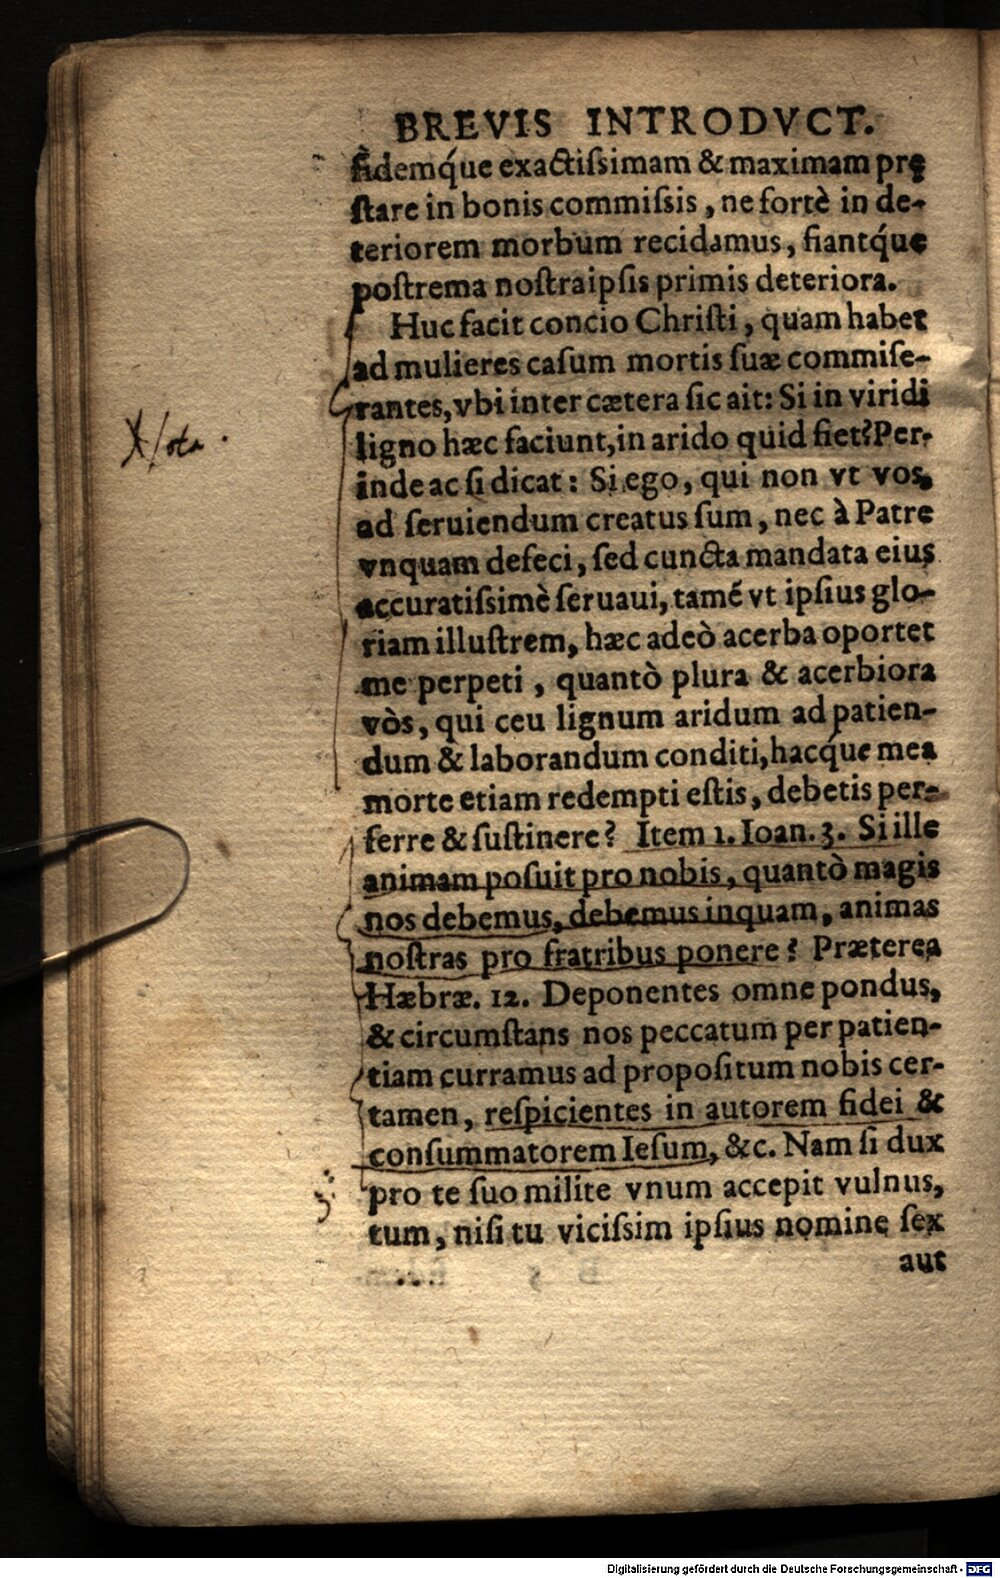 BREVIS INTRODVCT.
fidemq́ue exactiſsimam & maximam prę
ſtare in bonis commiſsis, ne fortè in de-
teriorem morbum recidamus, fiantq́ue
poſtrema noſtra ipſis primis deteriora.
Huc facit concio Chriſti, quam habet
ad mulieres caſum mortis ſuæ commiſe-
rantes, vbi inter cætera ſic ait: Si in viridi
ligno hæc faciunt, in arido quid fiet? Per-
inde ac ſi dicat: Si ego, qui non vt vos,
ad ſeruiendum creatus ſum, nec à Patre
vnquam defeci, ſed cuncta mandata eius
accuratiſsimè ſeruaui, tamẽ vt ipſius glo-
riam illuſtrem, hæc adeò acerba oportet
me perpeti, quantò plura & acerbiora
vòs, qui ceu lignum aridum ad patien-
dum & laborandum conditi, hacq́ue mea
morte etiam redempti eſtis, debetis per-
ferre & ſuſtinere? Item 1. Ioan. 3. Si ille
animam poſuit pro nobis, quantò magis
nos debemus, debemus inquam, animas
noſtras pro fratribus ponere? Præterea
Hæbræ. 12. Deponentes omne pondus,
& circumſtans nos peccatum per patien-
tiam curramus ad propoſitum nobis cer-
tamen, reſpicientes in autorem fidei &
conſummatorem Ieſum, &c. Nam ſi dux
pro te ſuo milite vnum accepit vulnus,
tum, niſi tu viciſsim ipſius nomine ſex
aut
Digitalisierung gefördert durch die Deutsche Forschungsgemeinschaft - DFG